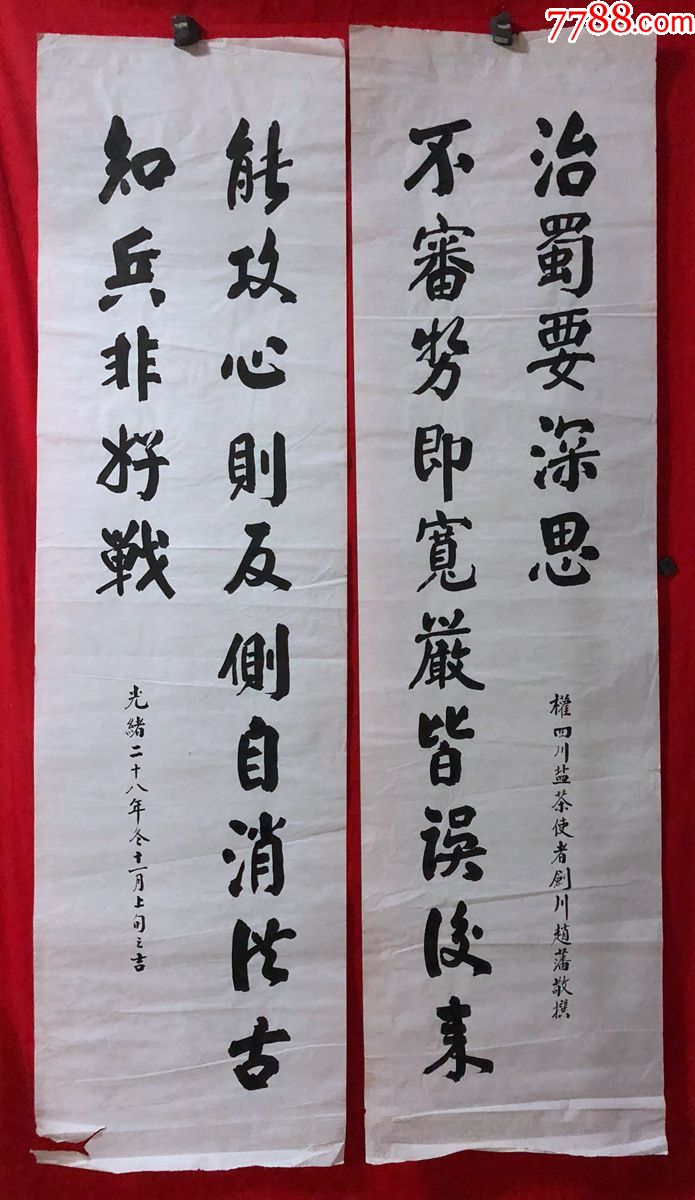 7788.com
能攻心則反側自消從古
知兵非好戰
光緒二十八年冬十一月上旬之吉
不審勢即寬嚴皆誤後來
治蜀要深思
權四川盐茶使者劍川趙藩敬撰